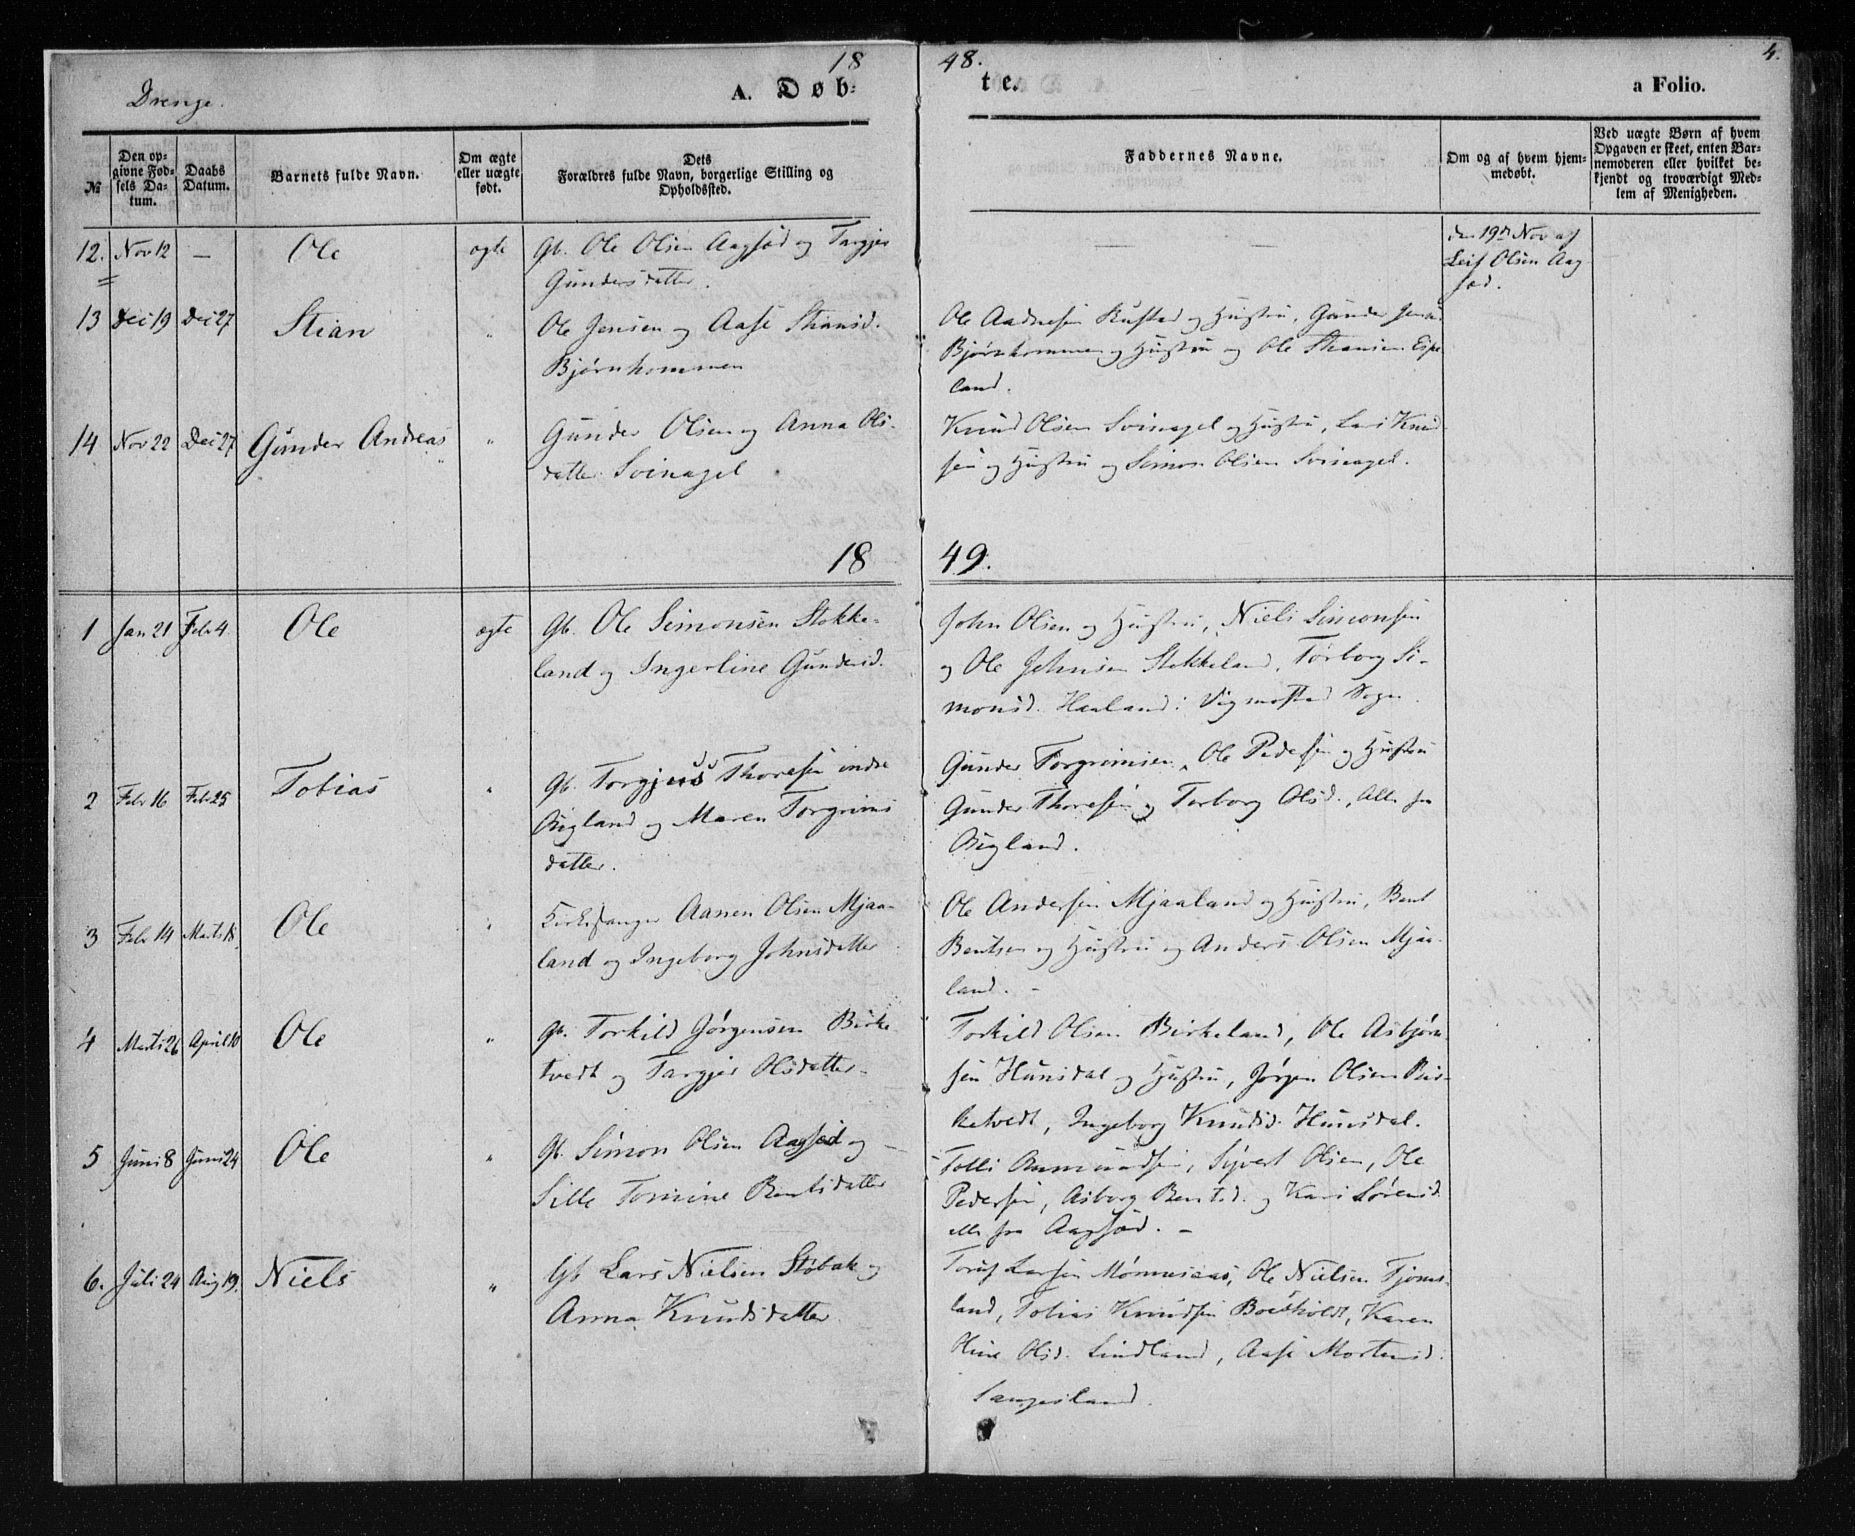 1848.
4.
Drenge.
A. Døbte.
a Folio.
№
Den opgivne Fødsels Datum.
Daabs Datum.
Barnets fulde Navn.
Om ægte eller uægte født.
Dets Forældres fulde Navn, borgerlige Stilling og Opholdssted.
Faddernes Navne.
Om og af hvem hjemmedøbt.
Ved uægte Børn af hvem Opgaven er skeet, enten Barnemoderen eller hvilket bekjendt og troværdigt Medlem af Menigheden.
12. Nov 12 — Ole ægte Gb. Ole Olsen Aagsød og Targjer
Gundersdatter.
den 19de Nov af
Leif Olsen Aag
sød.
13 Dec 19 Dec 27 Stian " Ole Jensen og Aase Stiansd.
Bjørnkommen
Ole Aadnesen Kustad og Hustru, Gunder Jens.
Bjørnkommen og Hustru og Ole Stiansen Espe
land.
14 Nov 22 Dec 27 Gunder Andreas " Gunder Olsen og Anna Ols-
datter Svinagel
Knud Olsen Svinagel og Hustru, Lars Knud
sen og Hustru og Simon Olsen Svinagel.
1849.
1 Jan 21 Febr 4 Ole ægte Gb. Ole Simonsen Stokke-
land og Ingerline Gundersd.
John Olsen og Hustru, Niels Simonsen
og Ole Johnsen Stokkeland, Torborg Si-
monsd. Haaland i Vigmostad Sogn.
2 Febr 16 Febr 25 Tobias " Gb. Torgjuss Thoresen indre
Bigland og Maren Torgrims
datter.
Gunder Torgrimsen, Ole Pedersen og Hustru
Gunder Thoresen og Torborg Olsd., Alle fra
Bigland.
3 Febr 14 Marts 18 Ole " Kirkesanger Aanen Olsen Mjaa-
land og Ingeborg Johnsdatter
Ole Andersen Mjaaland og Hustru, Bent
Bentsen og Hustru og Anders Olsen Mjaa-
land. -
4 Marts 26 April 10 Ole " Gb. Torkild Jørgensen Birke
tvedt og Targjer Olsdatter.
Torkild Olsen Birkeland, Ole Asbjørn-
sen Hunsdal og Hustru, Jørgen Olsen Bir-
ketvedt, Ingeborg Knudsd. Hunsdal.
5 Juni 8 Juni 24 Ole " Gb. Simon Olsen Aagsød og —
Sille Tomine Bentsdatter
Tolli Aanundsen, Syvert Olsen, Ole
Pedersen, Asborg Bentsd. og Kari Sørensd.
alle fra Aagsød. -
6. Juli 24 Aug 19. Niels " Gb Lars Nielsen Støbak og
Anna Knudsdatter.
Toris Larsen Mønnesaas, Ole Nielsen Fjoms-
land, Tobias Knudsen Boesholdt, Karen
Oline Olsd. Lindland, Aase Mortensd.
Sangesland.